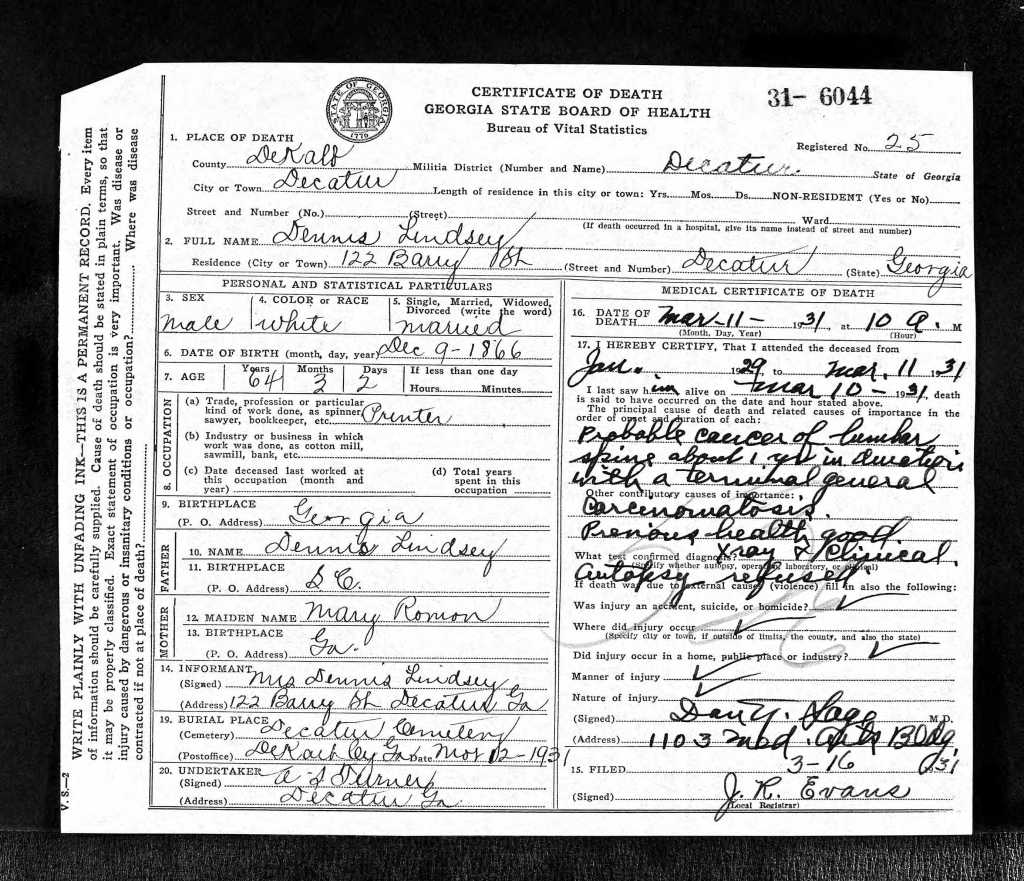 CERTIFICATE OF DEATH
GEORGIA STATE BOARD OF HEALTH
Bureau of Vital Statistics
31- 6044
STATE OF GEORGIA
1776
Registered No. 25
1. PLACE OF DEATH
County DeKalb Militia District (Number and Name) Decatur. State of Georgia
City or Town Decatur Length of residence in this city or town: Yrs. Mos. Ds. NON-RESIDENT (Yes or No)
Street and Number (No.) (Street) Ward
(If death occurred in a hospital, give its name instead of street and number)
2. FULL NAME Dennis Lindsey
Residence (City or Town) 122 Barry St (Street and Number) Decatur (State) Georgia
PERSONAL AND STATISTICAL PARTICULARS
3. SEX 4. COLOR or RACE 5. Single, Married, Widowed, Divorced (write the word)
male white married
6. DATE OF BIRTH (month, day, year) Dec 9-1866
7. AGE Years Months Days If less than one day
64 3 2 Hours Minutes
8. OCCUPATION
(a) Trade, profession or particular
kind of work done, as spinner,
sawyer, bookkeeper, etc. Printer
(b) Industry or business in which
work was done, as cotton mill,
sawmill, bank, etc.
(c) Date deceased last worked at
this occupation (month and
year)
(d) Total years
spent in this
occupation
9. BIRTHPLACE
(P. O. Address) Georgia
FATHER
10. NAME Dennis Lindsey
11. BIRTHPLACE
(P. O. Address) S C.
MOTHER
12. MAIDEN NAME Mary Romon
13. BIRTHPLACE
(P. O. Address) Ga.
14. INFORMANT
(Signed) Mrs Dennis Lindsey
(Address) 122 Barry St Decatur Ga
19. BURIAL PLACE
(Cemetery) Decatur Cemetery
(Postoffice) Ga Date 12-1931
20. UNDERTAKER
(Signed) A S Turner
(Address) Decatur Ga.
MEDICAL CERTIFICATE OF DEATH
16. DATE OF
DEATH Mar-11- 1931, at 10 a. M
(Month, Day, Year) (Hour)
17. I HEREBY CERTIFY, That I attended the deceased from
Jan. 1929 to mar. 11 1931
I last saw him alive on mar 10- 1931, death
is said to have occurred on the date and hour stated above.
The principal cause of death and related causes of importance in the
order of onset and duration of each:
Probable cancer of lumbar
spine about 1 yr in duration
with a terminal general
Other contributory causes of importance:
Carcenomatosis.
Previous health good
What test confirmed diagnosis? Xray & Clinical.
(Specify whether autopsy, operation, laboratory, or clinical)
Autopsy refused
If death was due to external causes (violence) fill in also the following:
Was injury an accident, suicide, or homicide? ✓
Where did injury occur ✓
(Specify city or town, if outside of limits, the county, and also the state)
Did injury occur in a home, public place or industry? ✓
Manner of injury ✓
Nature of injury ✓
(Signed) Dan Y. Sage M.D.
(Address) 1103 Med. Arts Bldg.
15. FILED 3-16 1931
(Signed) J. R. Evans
(Local Registrar)
WRITE PLAINLY WITH UNFADING INK—THIS IS A PERMANENT RECORD. Every item
of information should be carefully supplied. Cause of death should be stated in plain terms, so that
it may be properly classified. Exact statement of occupation is very important. Was disease or
injury caused by dangerous or insanitary conditions or occupation? Where was disease
contracted if not at place of death?
V. S.—2